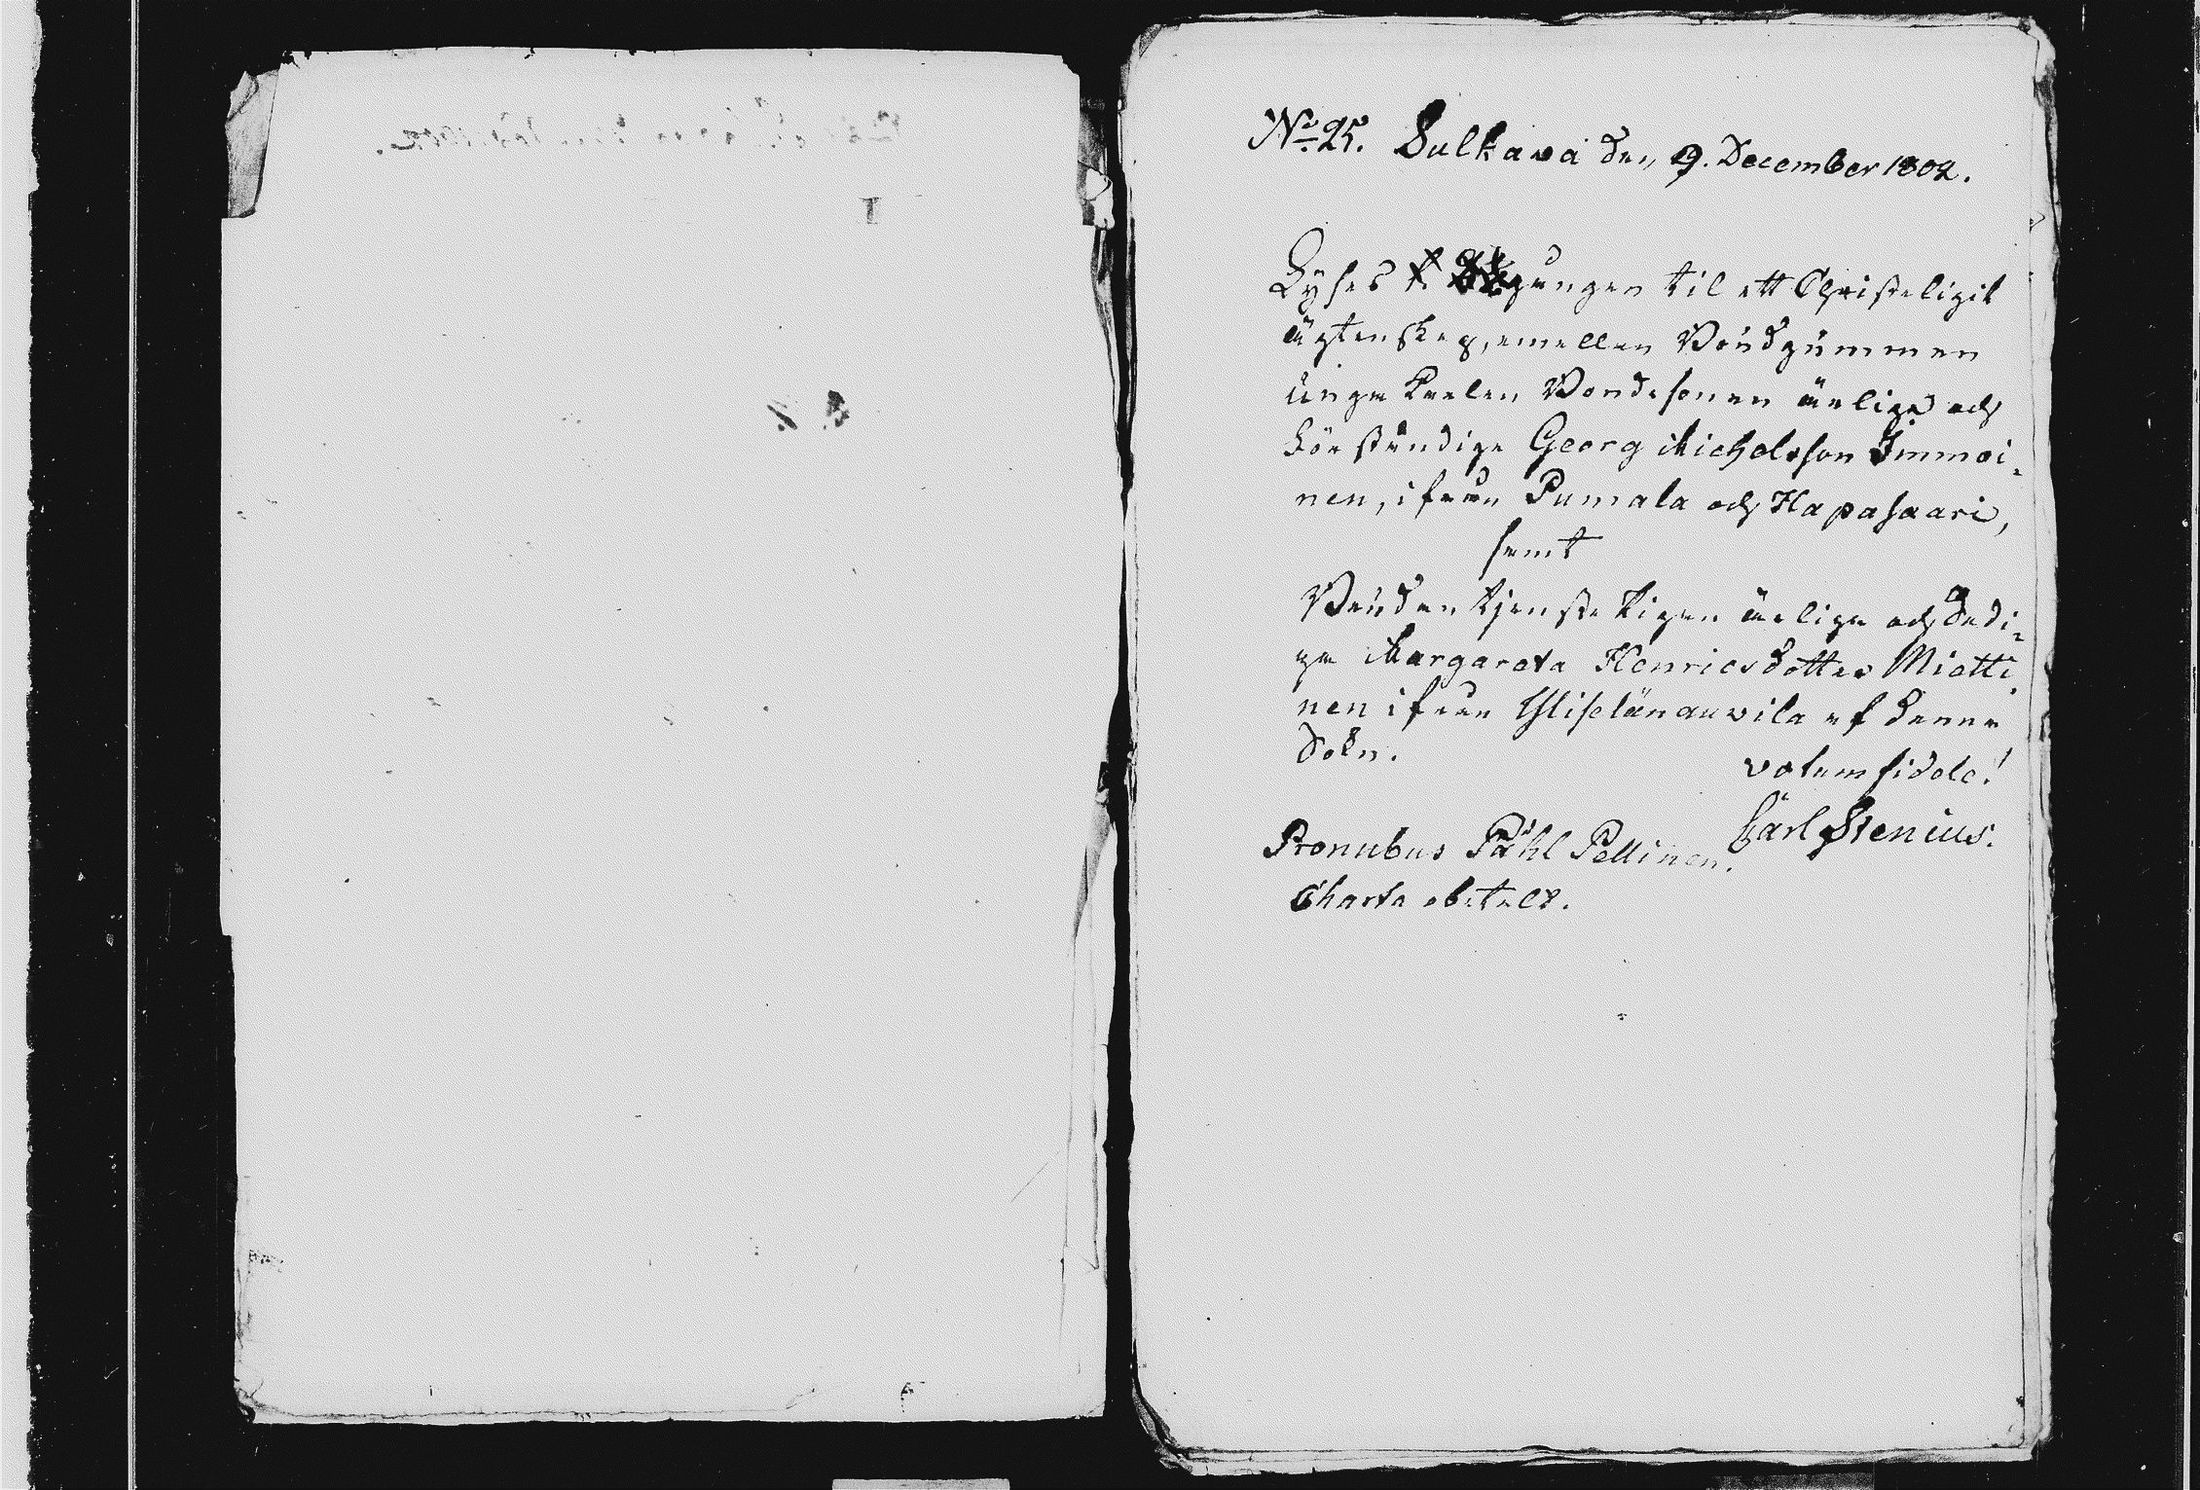 No 25. Sulkava den 9. December 1802.
Lyses 1. gången til ett Christeligit
ägtenskap, emellan Brudgummen
unga Karlen Bondesonen ärlige och
förståndige Georg Michelsson Immoi=
nen, ifrån Pumala och Hapasaari,
samt
Bruden tjenste Pigan ärliga och Dedi=
ga Margareta Henricsdotter Mietti
nen ifrån af denna
Sokn.
votum fidele!
Carl Stenius.
Pronubus Påhl Pellinen.
Charta obetalt.